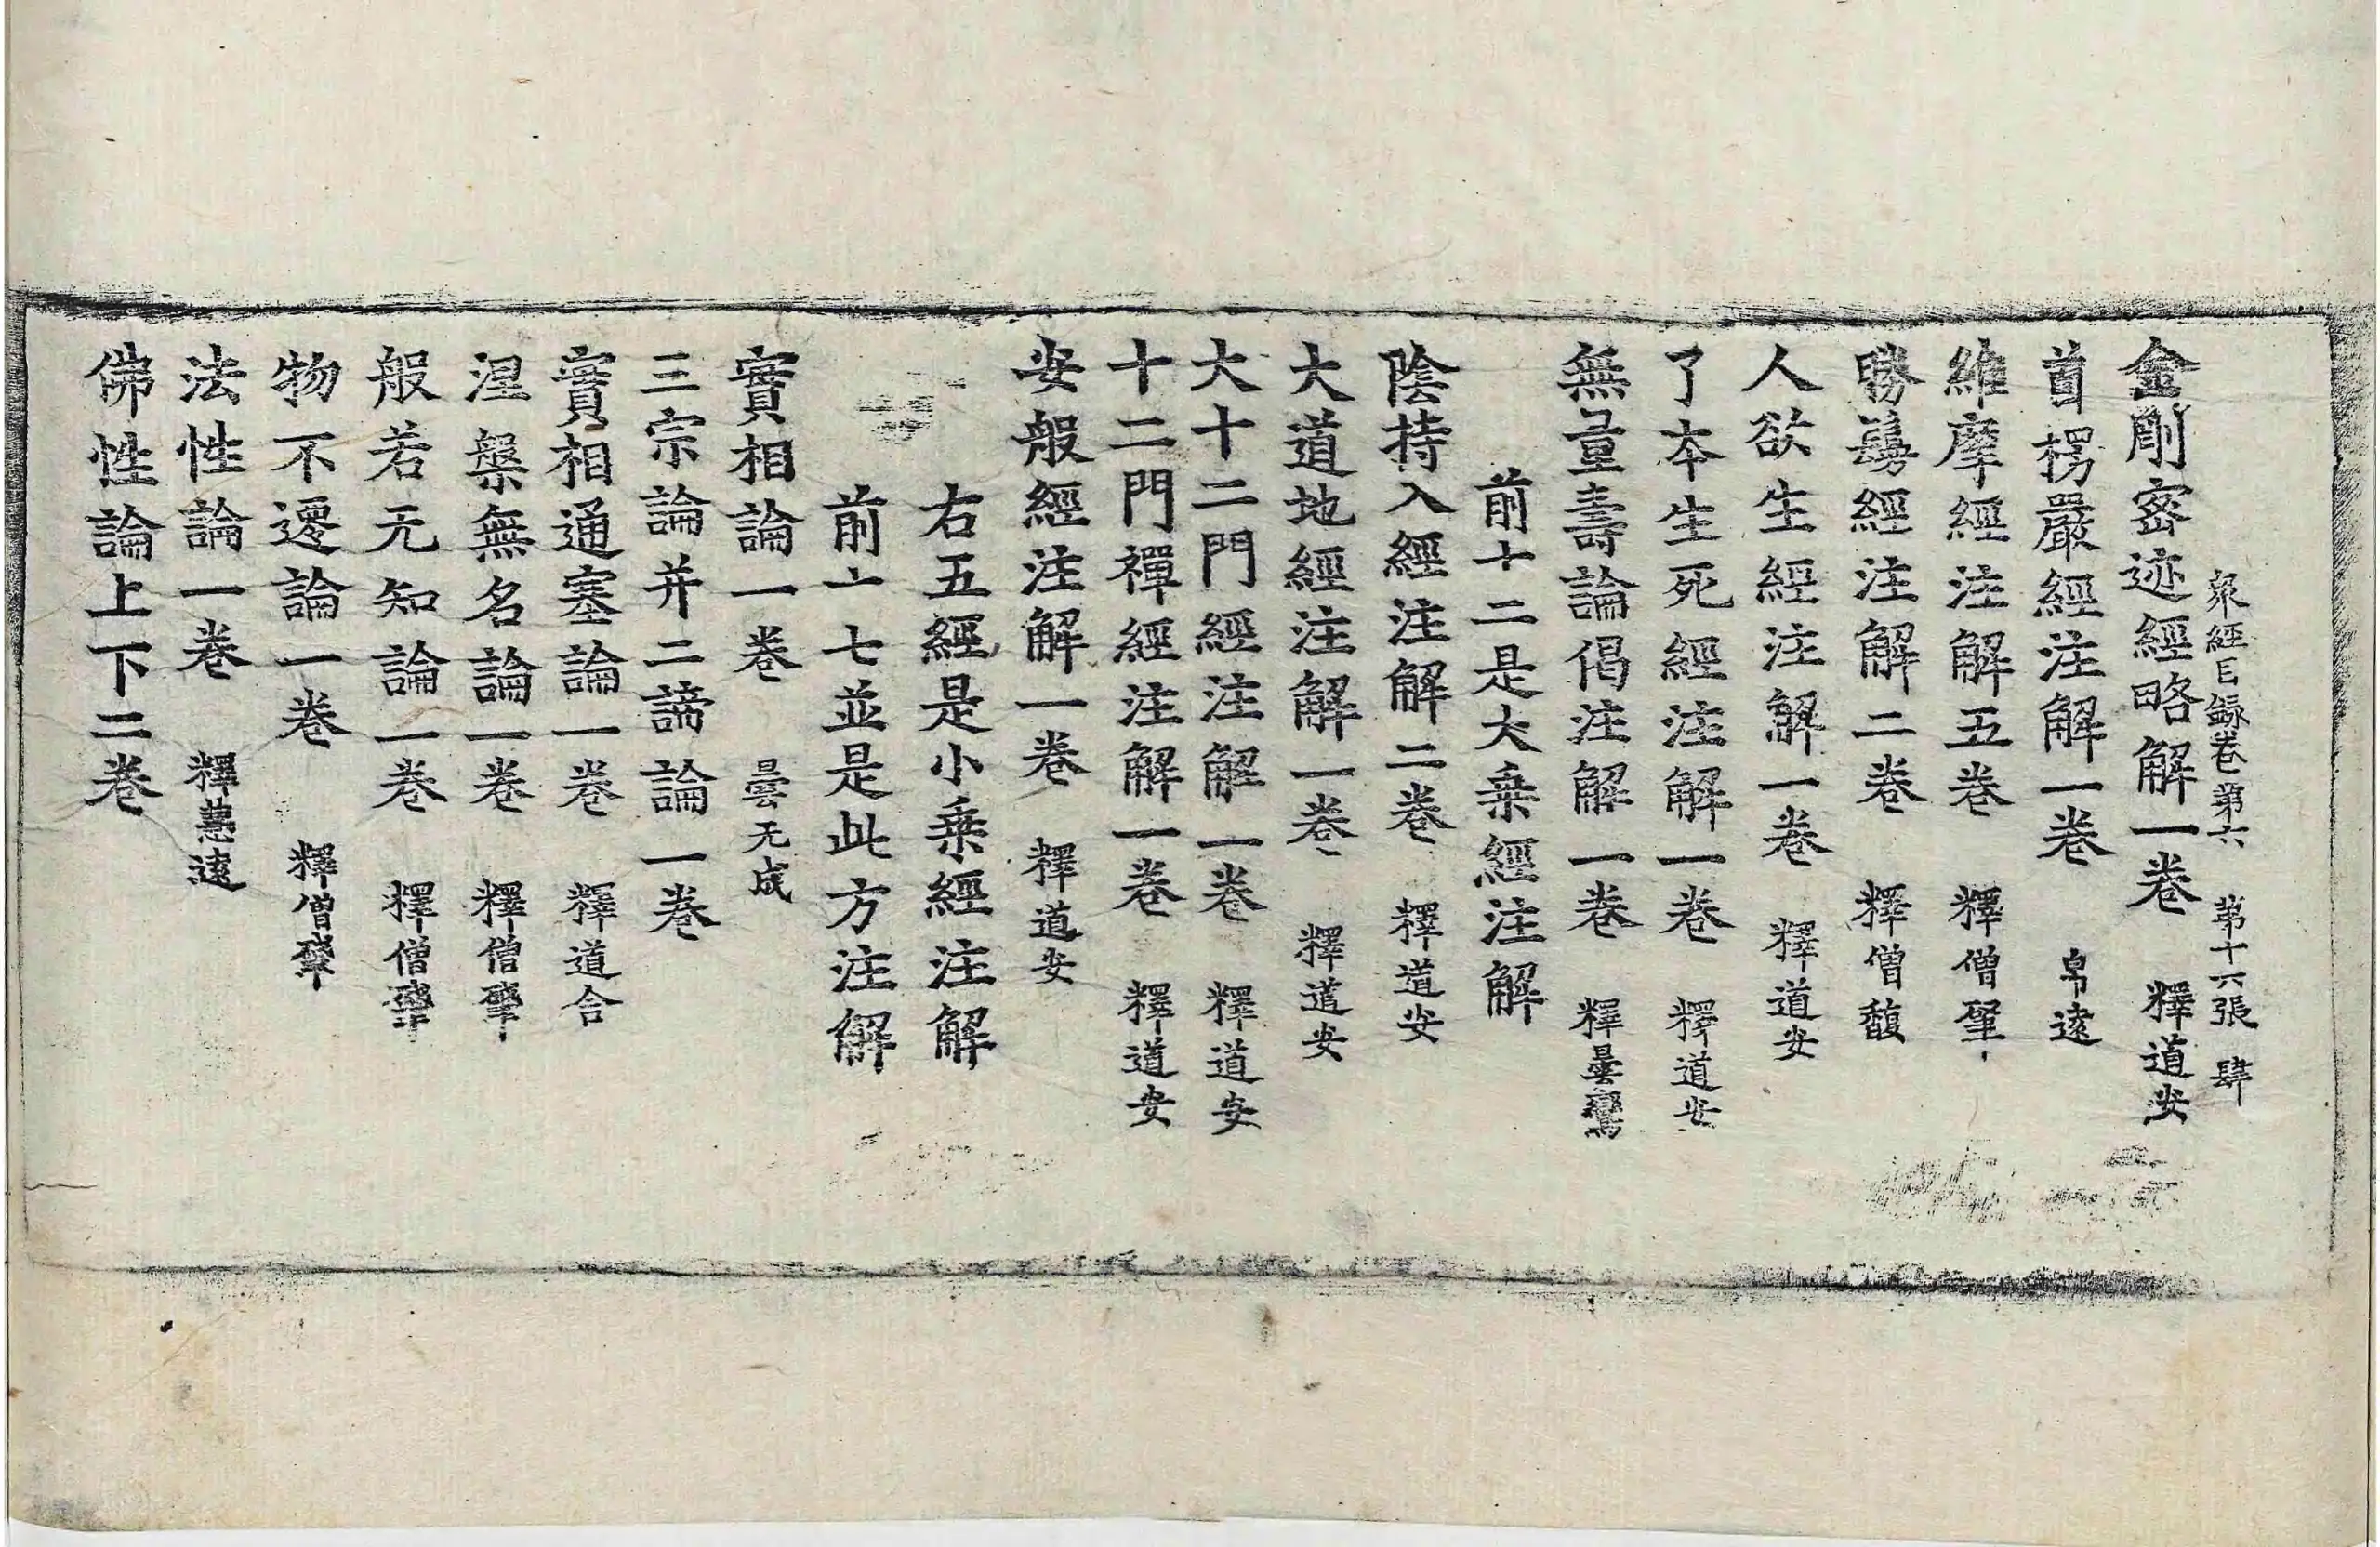 衆經目録卷第六 第十六張 肆
金剛密迹經略解一卷 釋道安
首楞嚴經注解一卷 帛遠
維摩經注解五卷 釋僧肇
勝鬘經注解二卷 釋僧馥
人欲生經注解一卷 釋道安
了本生死經注解一卷 釋道安
無量壽論偈注解一卷 釋曇鸞
前十二是大乗經注解
陰持入經注解二卷 釋道安
大道地經注解一卷 釋道安
大十二門經注解一卷 釋道安
十二門禪經注解一卷 釋道安
安般經注解一卷 釋道安
右五經是小乗經注解
前十七並是此方注解
實相論一卷 曇无成
三宗論并二諦論一卷
實相通塞論一卷 釋道含
涅槃無名論一卷 釋僧肇
般若无知論一卷 釋僧肇
物不遷論一卷 釋僧肇
法性論一卷 釋慧遠
佛性論上下二卷